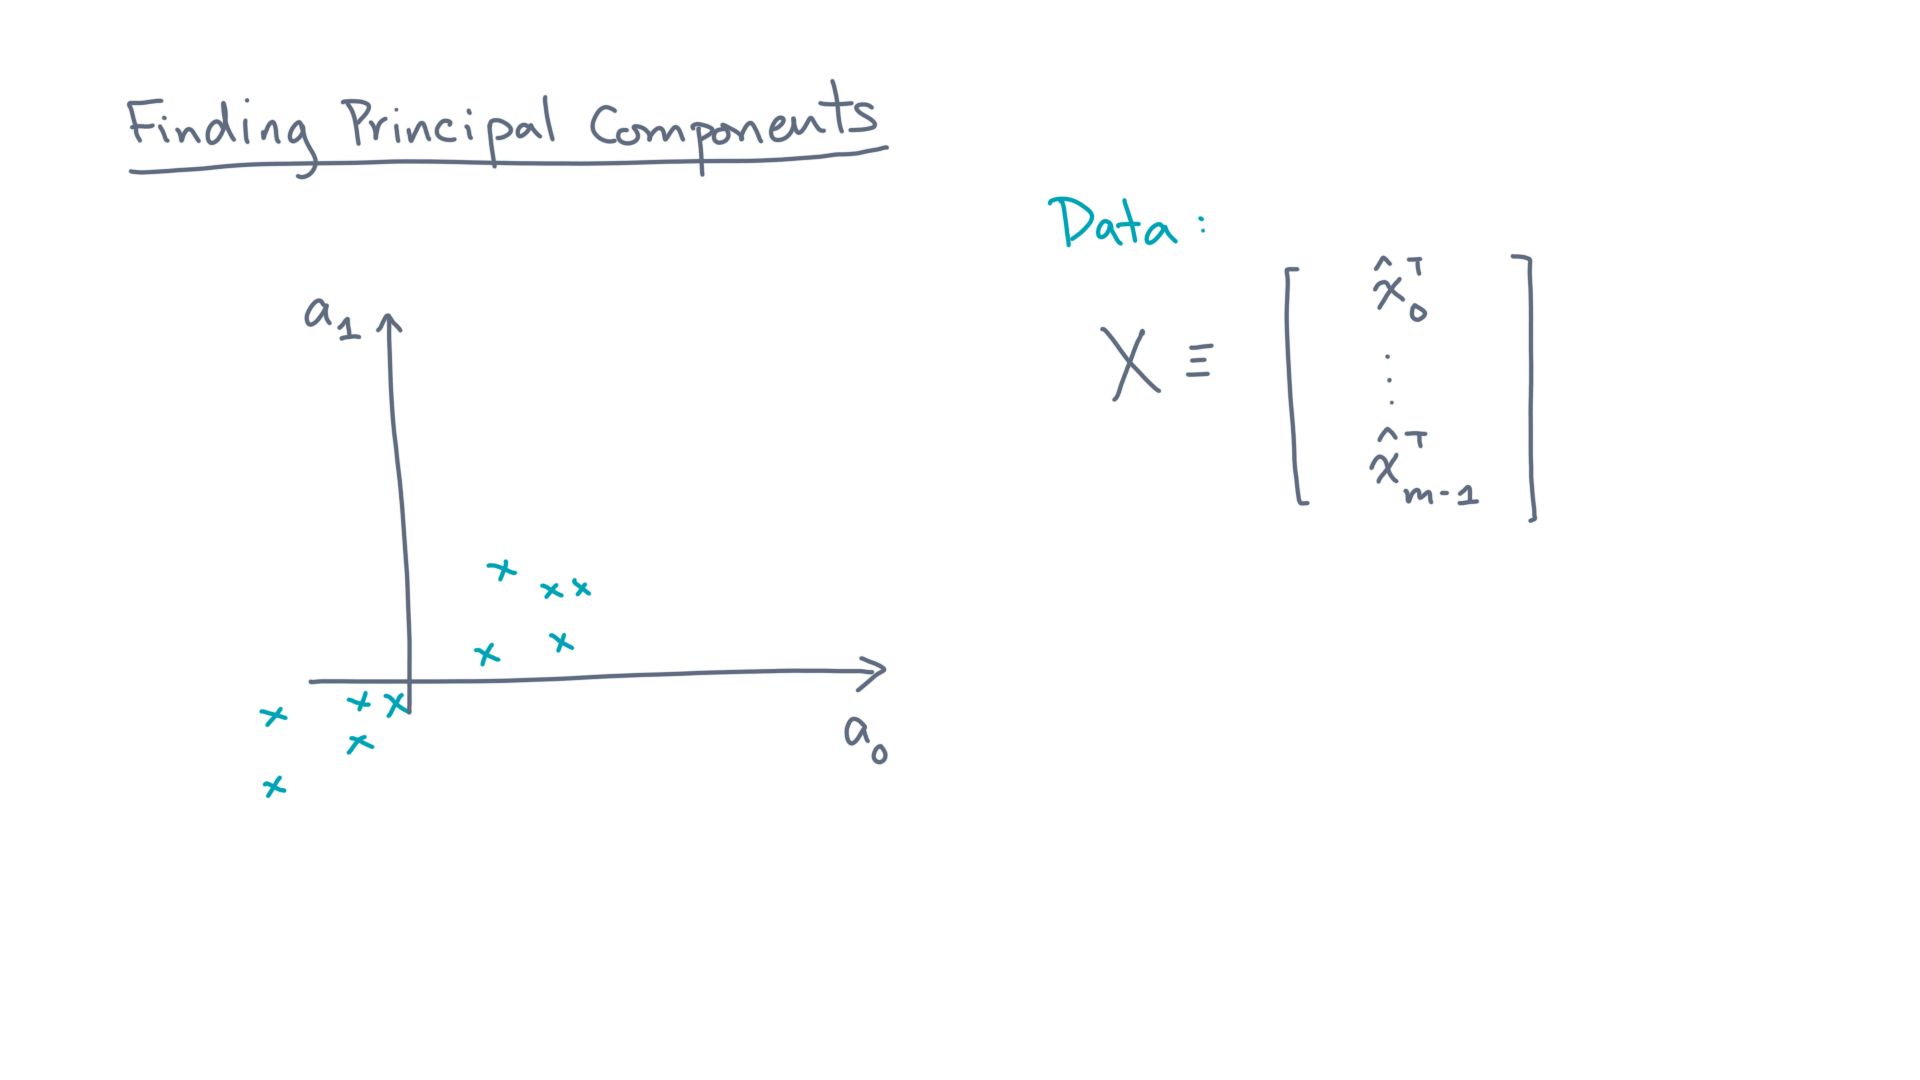 Finding Principal Components
Data:
a₁
X ≡ [ x̂₀ᵀ
⋮
x̂ₘ₋₁ᵀ ]
a₀